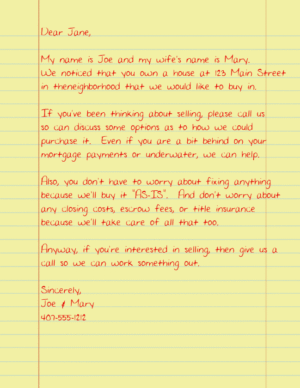 Dear Jane,
My name is Joe and my wife's name is Mary.
We noticed that you own a house at 123 Main Street
in theneighborhood that we would like to buy in.
If you've been thinking about selling, please call us
so can discuss some options as to how we could
purchase it. Even if you are a bit behind on your
mortgage payments or underwater, we can help.
Also, you don't have to worry about fixing anything
because we'll buy it "AS-IS". And don't worry about
any closing costs, escrow fees, or title insurance
because we'll take care of all that too.
Anyway, if you're interested in selling, then give us a
call so we can work something out.
Sincerely,
Joe & Mary
407-555-1212